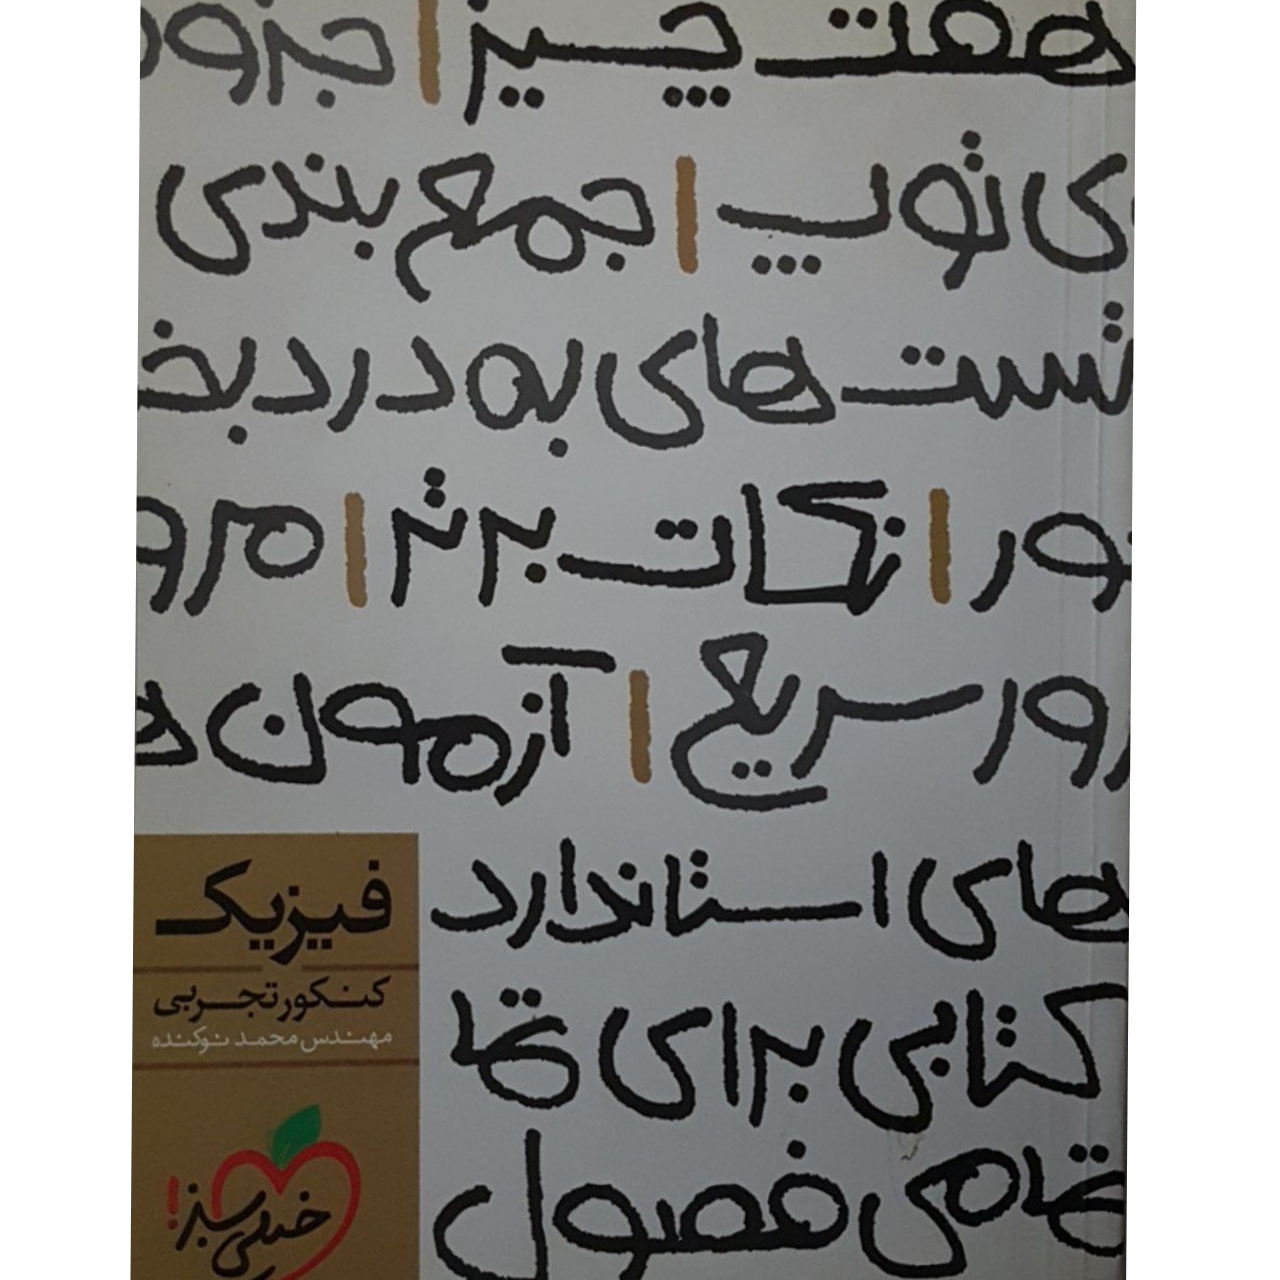 هفت چیز | جزو
ی توپ | جمع بندی
تست های به درد بخ
ور | نکات برتر | مرو
رور سریع | آزمون ه
های استاندارد
کتابی برای تما
تمامی فصول
فیزیک
کنکور تجربی
مهندس محمد نوکنده
خیلی سبز!